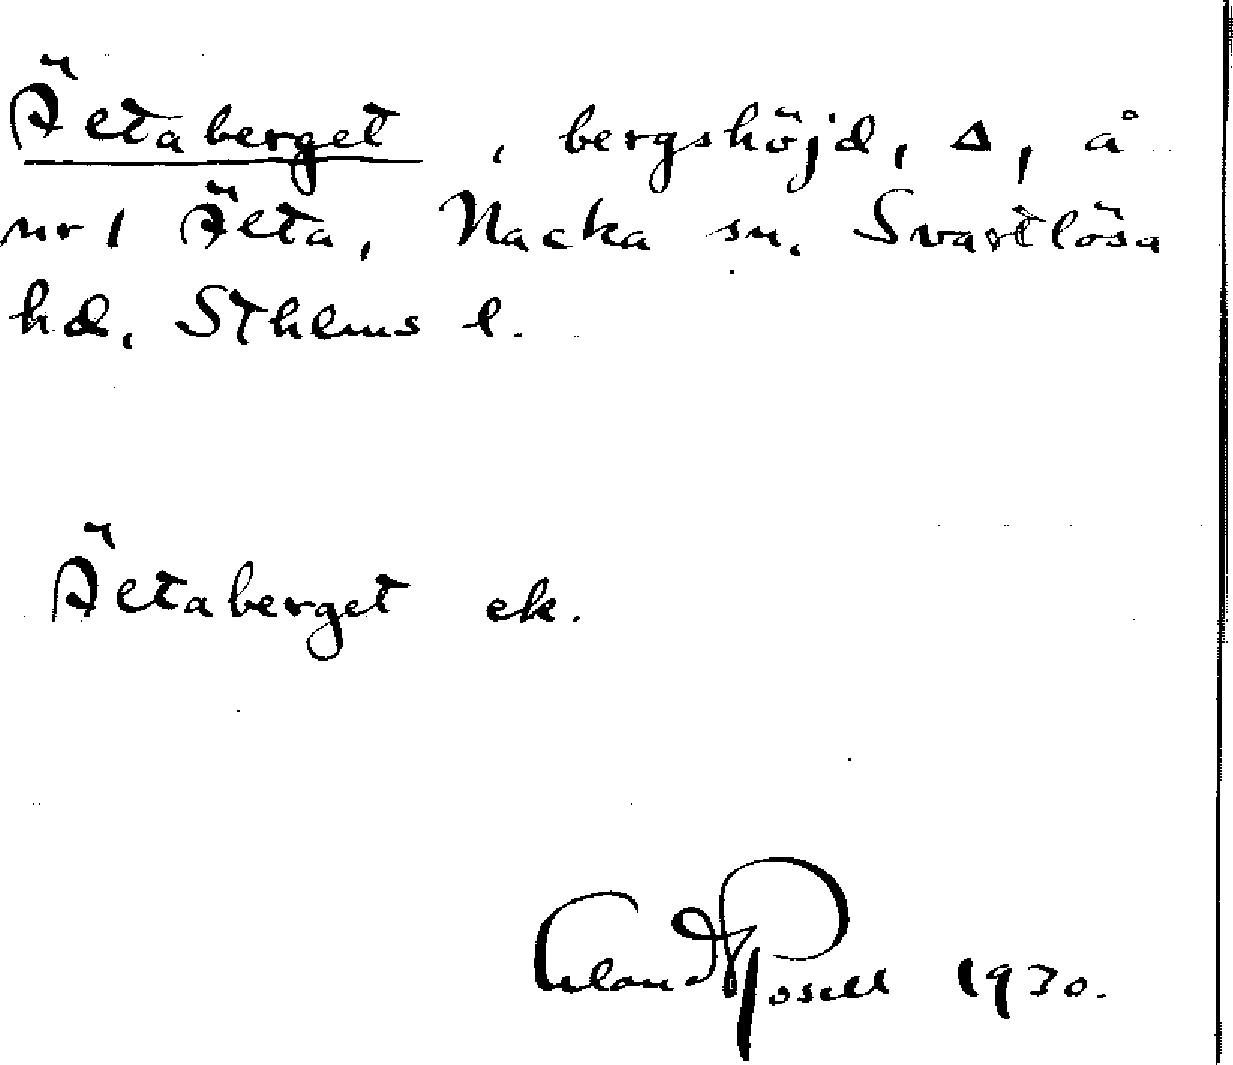 Ältaberget, bergshöjd, Δ, å
nr 1 Älta, Nacka sn. Svartlösa
hd, Sthlms l.
Ältaberget ek.
Erland Rosell 1930.